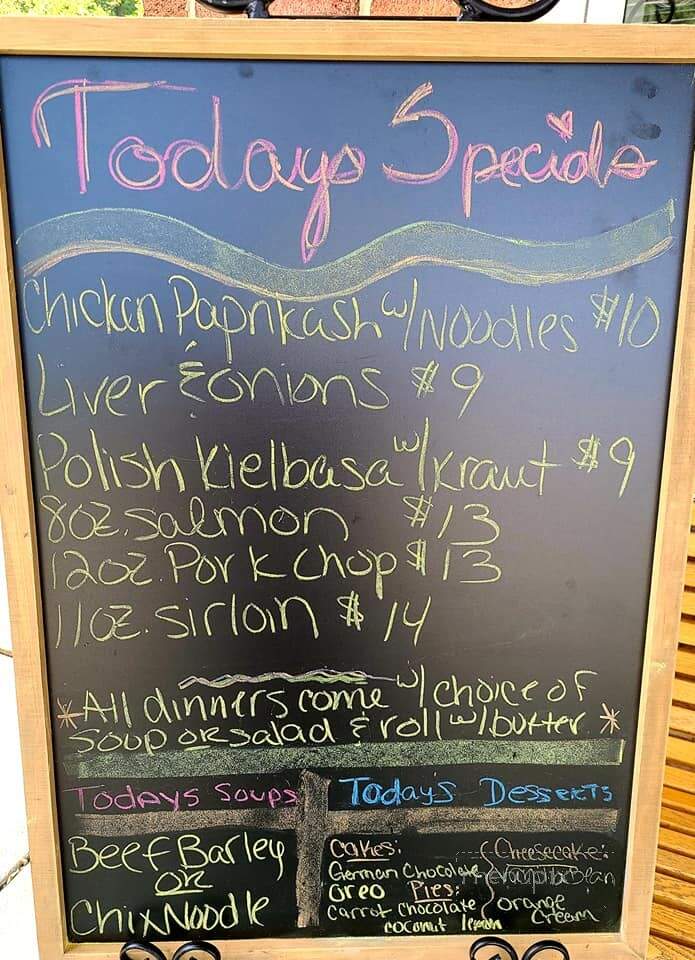 Todays Specials
Chicken Paprikash w/Noodles $10
Liver & onions $9
Polish Kielbasa w/Kraut $9
8oz. salmon $13
12oz. Pork Chop $13
11oz. sirloin $14
*All dinners come w/ choice of
soup or salad & roll w/butter *
Todays Soups
Beef Barley
or
Chix Noodle
Today's Desserts
Cakes:
German Chocolate
Oreo
Carrot
Pies:
Chocolate
coconut lemon
Cheesecake:
Orange
Cream